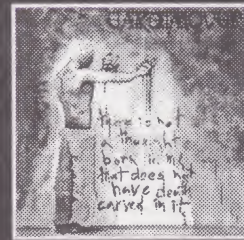 there is not
a thought
born in me
that does not
have death
carved in it